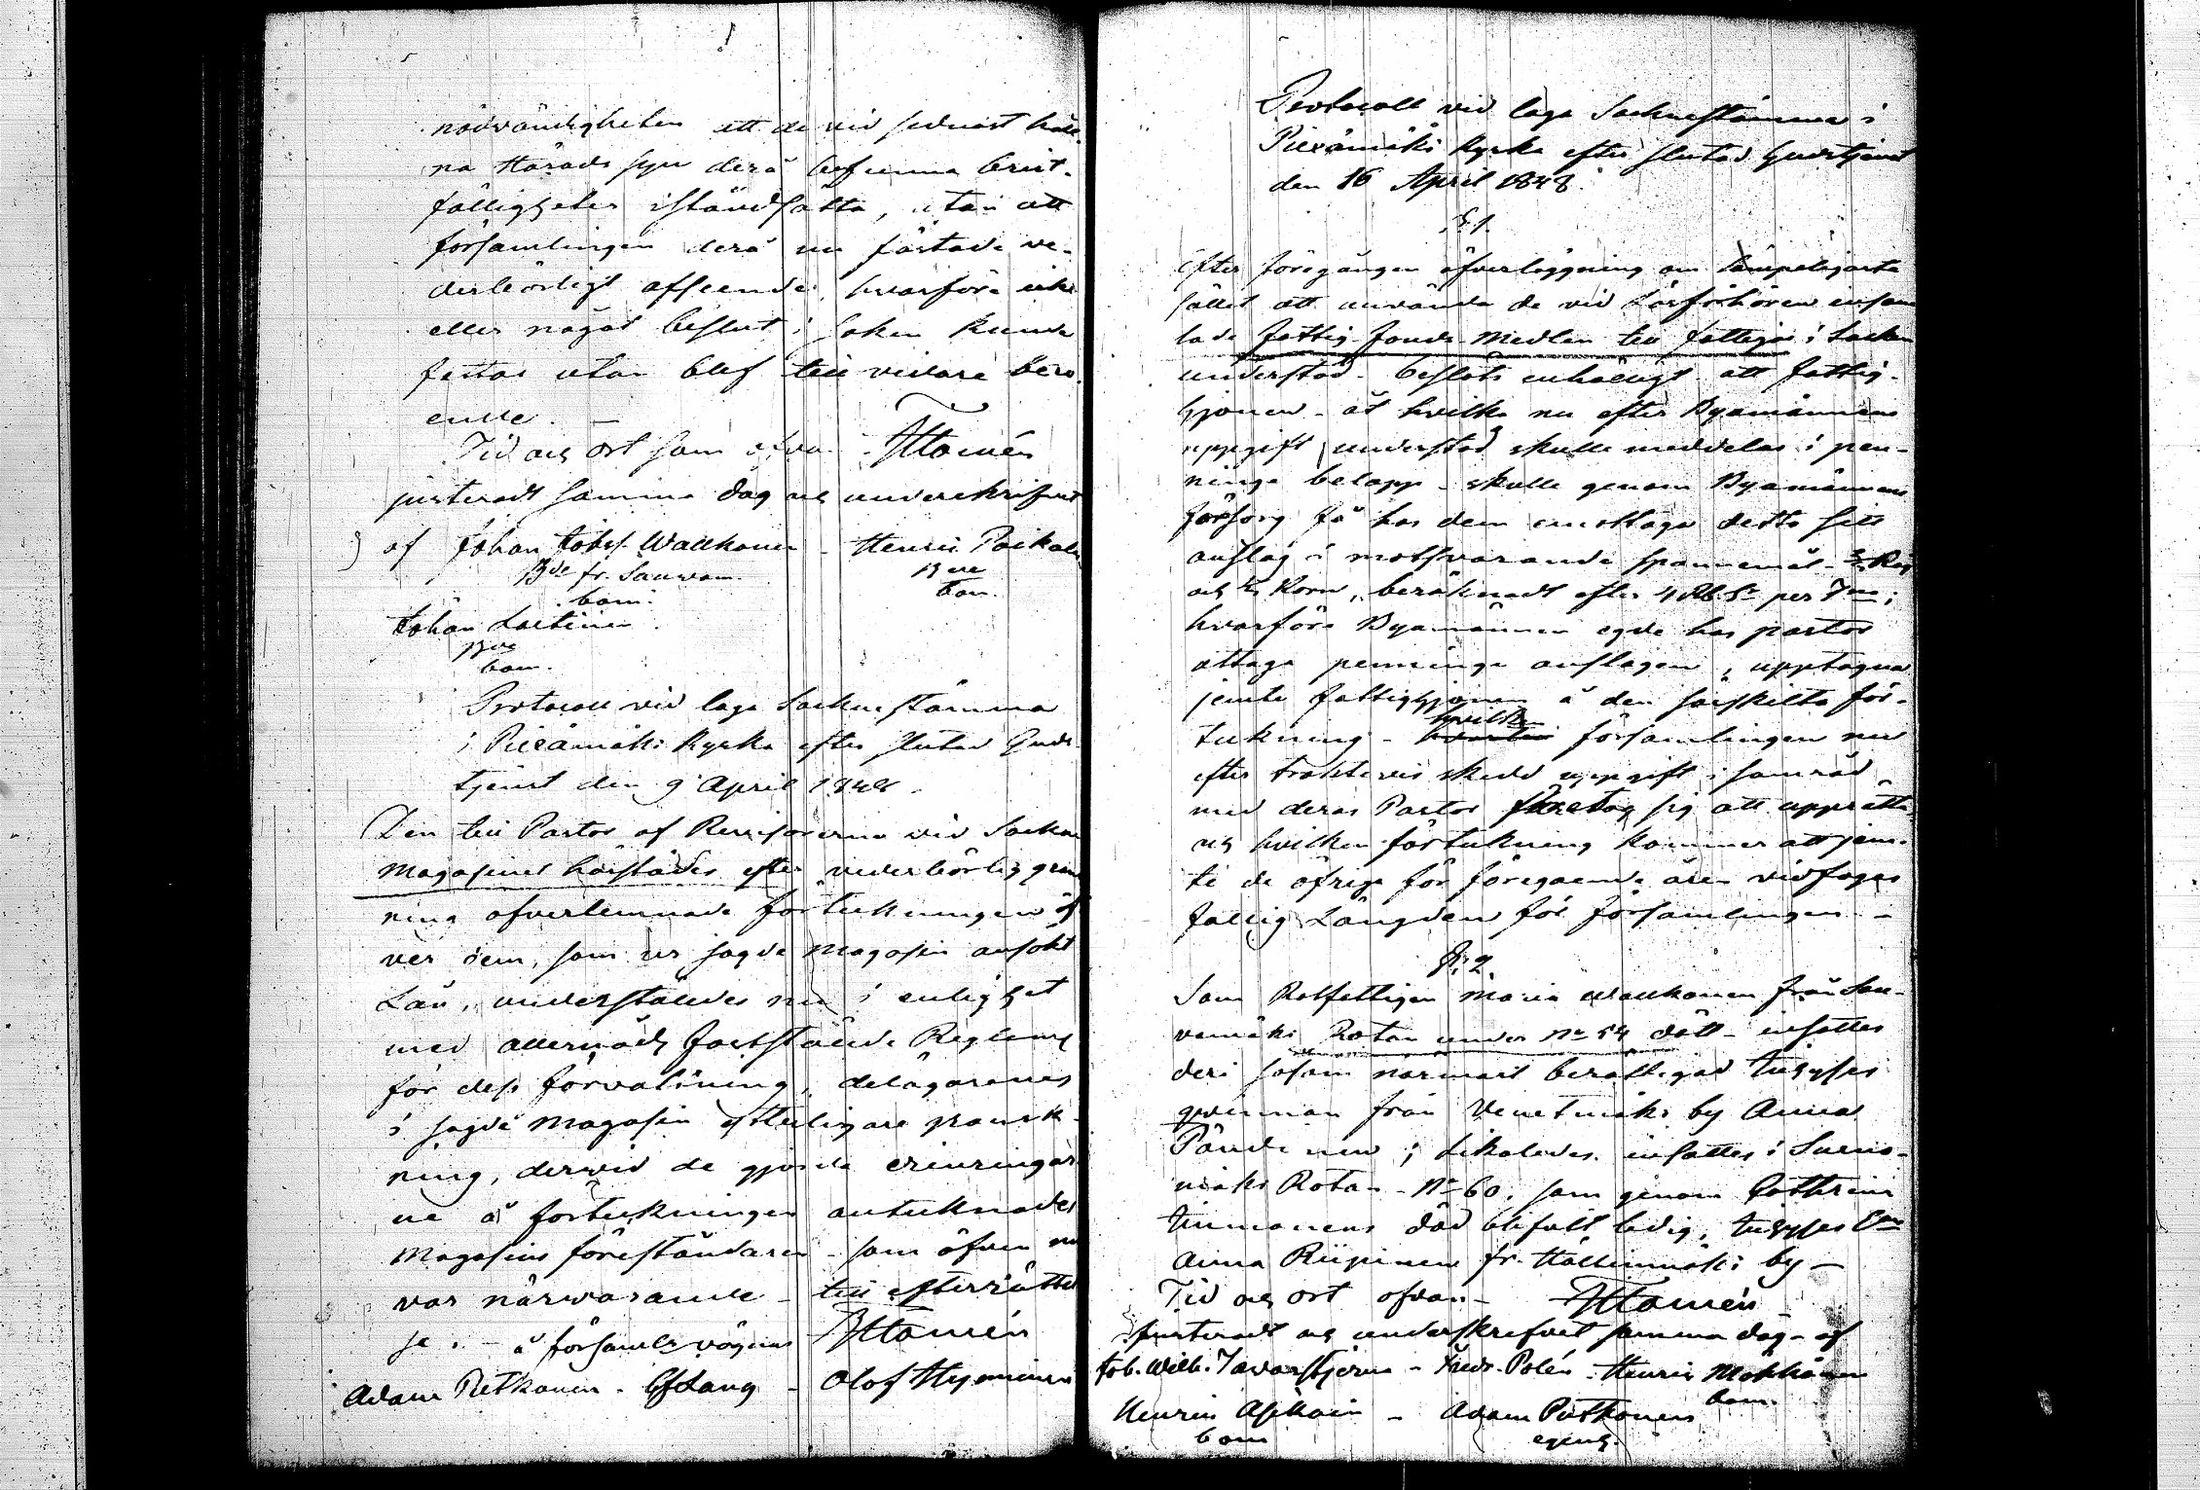 nödvändigheten att de vid sednast håll
na Härads syn derå befunna brist-
fälligheter iståndsätta, utan att
församlingen derå nu fästade ve-
derbörligt afseende, hvarföre icke
eller något beslut i saken kunde
fattas utan blef till vidare bero-
ende. –
Tid och ort som ofvan
justeradt samma dag och underskrifvet
af Johan Wallkonen – Henric
fr.
bom.
bom.
Johan Laitinen
bom.
Protocoll vid laga Sockenstämma
i Piexämäki Kyrka efter slutad Guds
tjenst den 9 April 1848.
Den till Pastor af Revisorerna vid Socken
Magasinet härstädes efter vederbörlig gran
ning öfverlemnade förteckningen öf
ver dem, som ur sagde Magasin ansökt
Lån, underställdes nu i enlighet
med allernåd. fastställde Reglem.
för dess förvaltning, delägarenes
i sagde Magasin ytterligare gransk-
ning, dervid de gjorde erinringar
ne å förteckningen antecknades
Magasins föreståndaren – som äfven nu
var närvarande – till efterrättel
se. – å församl. vägnar
Adam Putkonen – – Olof Hyvönen
Protocoll vid laga Sockenstämma i
Piexämäki Kyrka efter slutad Gudstjenst
den 16 April 1848.
§. 1.
Efter föregången öfverläggning om lämpeligaste
sättet att använda de vid Läsförhören insam
lade fattig fonds medlen till fattiges i Socken
understöd – beslöts enhälligt att fattig-
hjonen – åt hvilka nu efter Byamännens
uppgift understöd skulle meddelas i pen-
ninge belopp – skulle genom Byamännens
försorg få hos dem emottaga detta sitt
anslag i motsvarande spannemål – Råg
och Korn, beräknadt efter 4 Rb. Sr per T:na;
hvarföre Byamännen egde hos pastor
uttaga penninge anslagen, upptagna
jemte fattighjonen å den särskilta för-
teckning – hvilken församlingen nu
efter skedd uppgift i samråd
med deras Pastor företog sig att upprätta,
och hvilken förteckning kommer att jem-
te de öfrige för föregående åren vidfogas
fattig Längden för församlingen –
§. 2.
Som Rotfattigen Maria Wallkonen från Sau-
vamäki Rotan under No 54 dött – insattes
deri såsom närmast berättigad
qvinnan från Venetmäki by Anna
Pändinen; likaledes insattes i Surno-
mäki Rota – No 60, som genom Cathrina
Timonens död blifvit ledig,
Anna Riipinen fr. Hällinmäki by –
Tid och ort ofvan –
Justeradt och underskrifvet samma dag – af
Tavaststjerna – Fredr. Polén – Henric
bom.
Henric Asikain – Adam Putkonen
bom
egenh.